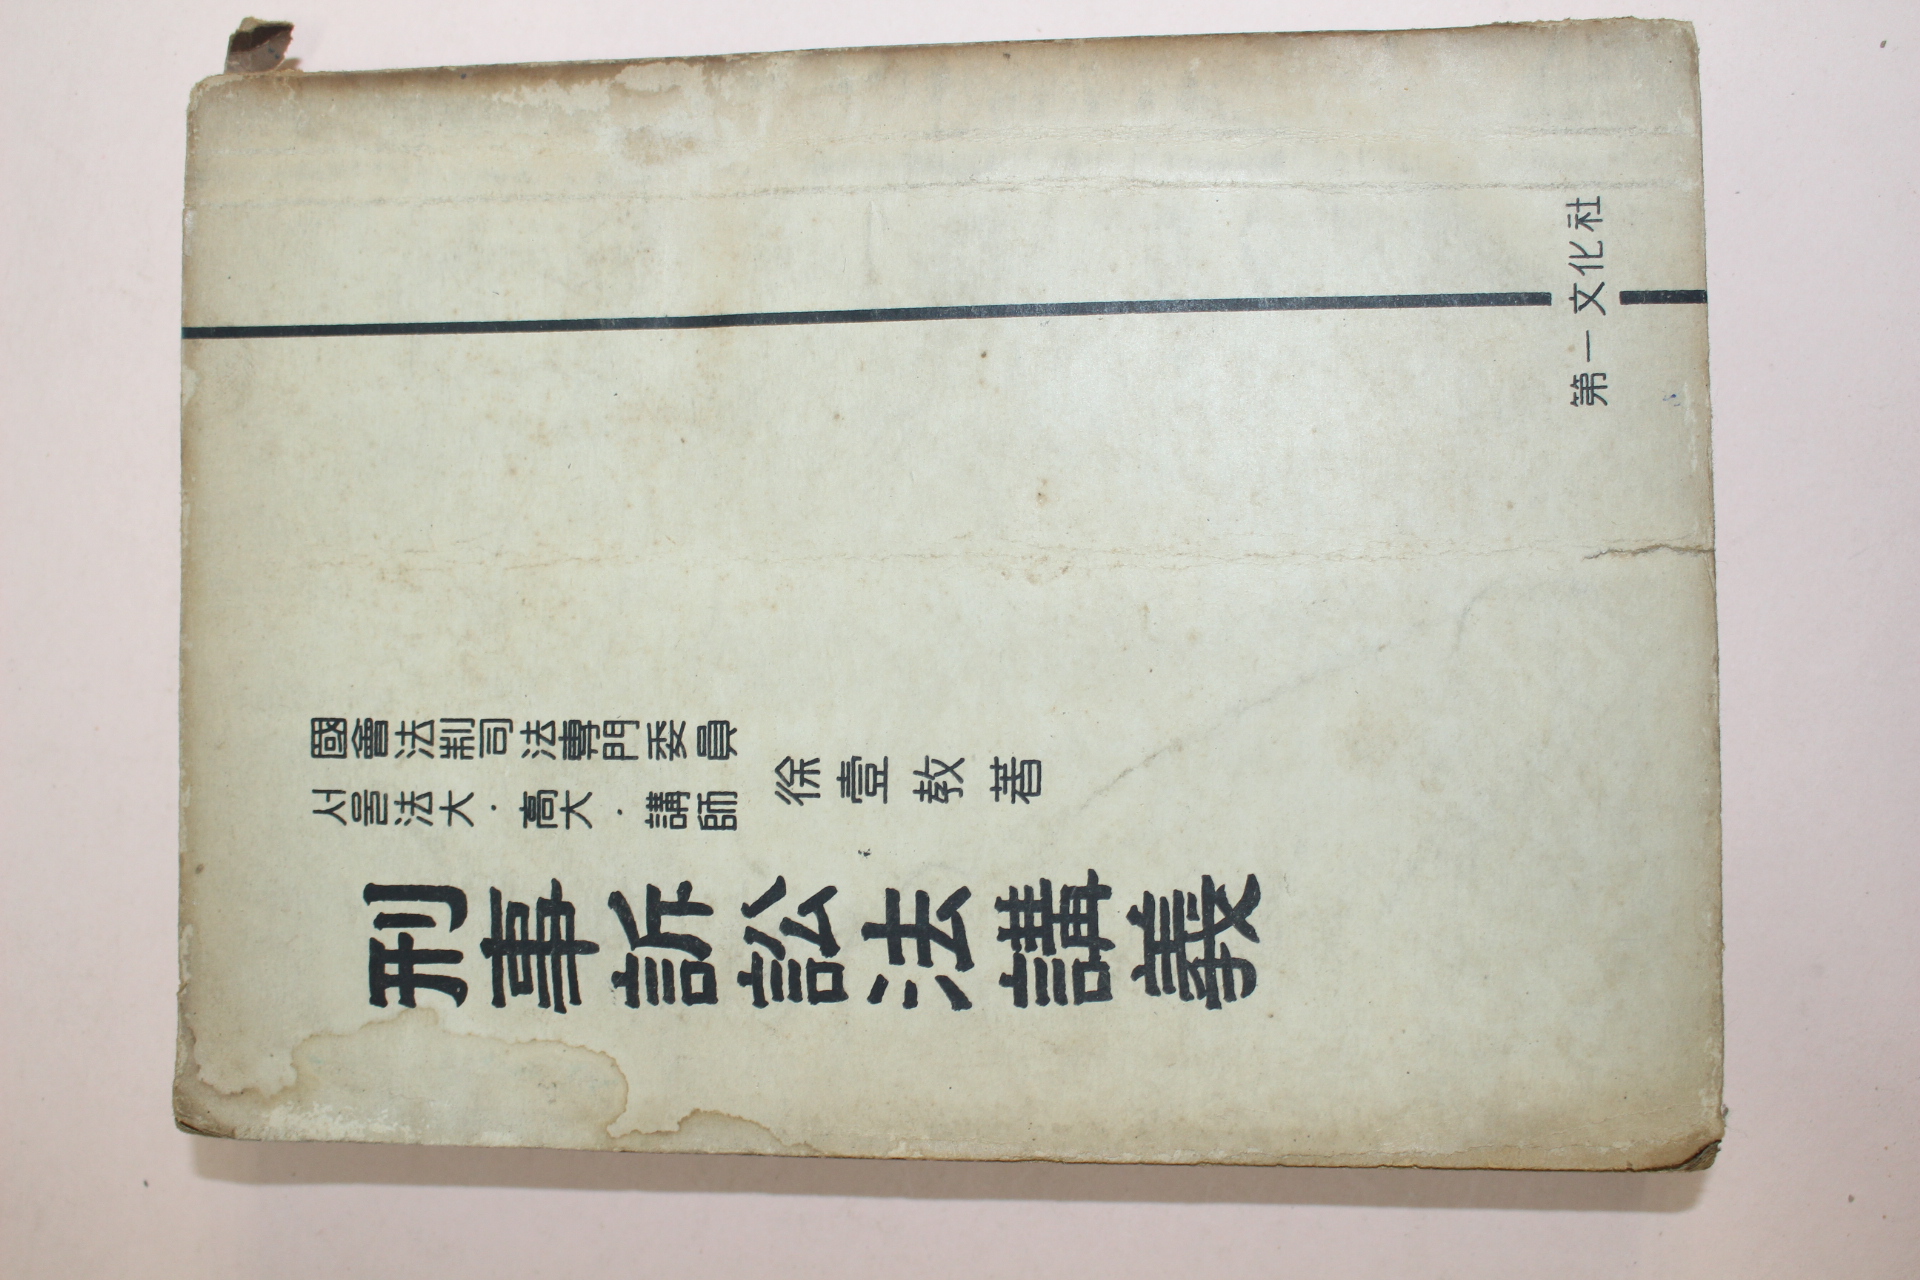 國會法制司法專門委員
서울法大·高大·講師
徐壹敎著
刑事訴訟法講義
第一文化社